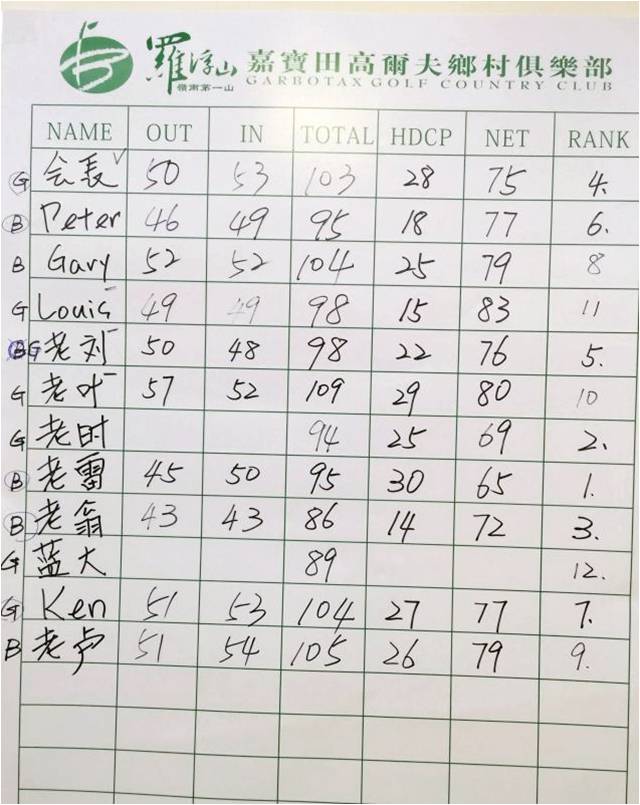 羅浮山 嘉寶田高爾夫鄉村俱樂部
嶺南第一山 GARBOTAX GOLF COUNTRY CLUB
NAME OUT IN TOTAL HDCP NET RANK
G 会長 50 53 103 28 75 4.
B Peter 46 49 95 18 77 6.
B Gary 52 52 104 25 79 8
G Louis 49 49 98 15 83 11
G 老刘 50 48 98 22 76 5.
G 老叶 57 52 109 29 80 10
G 老时 94 25 69 2.
B 老雷 45 50 95 30 65 1.
B 老翁 43 43 86 14 72 3.
G 蓝大 89 12.
G Ken 51 53 104 27 77 7.
B 老卢 51 54 105 26 79 9.